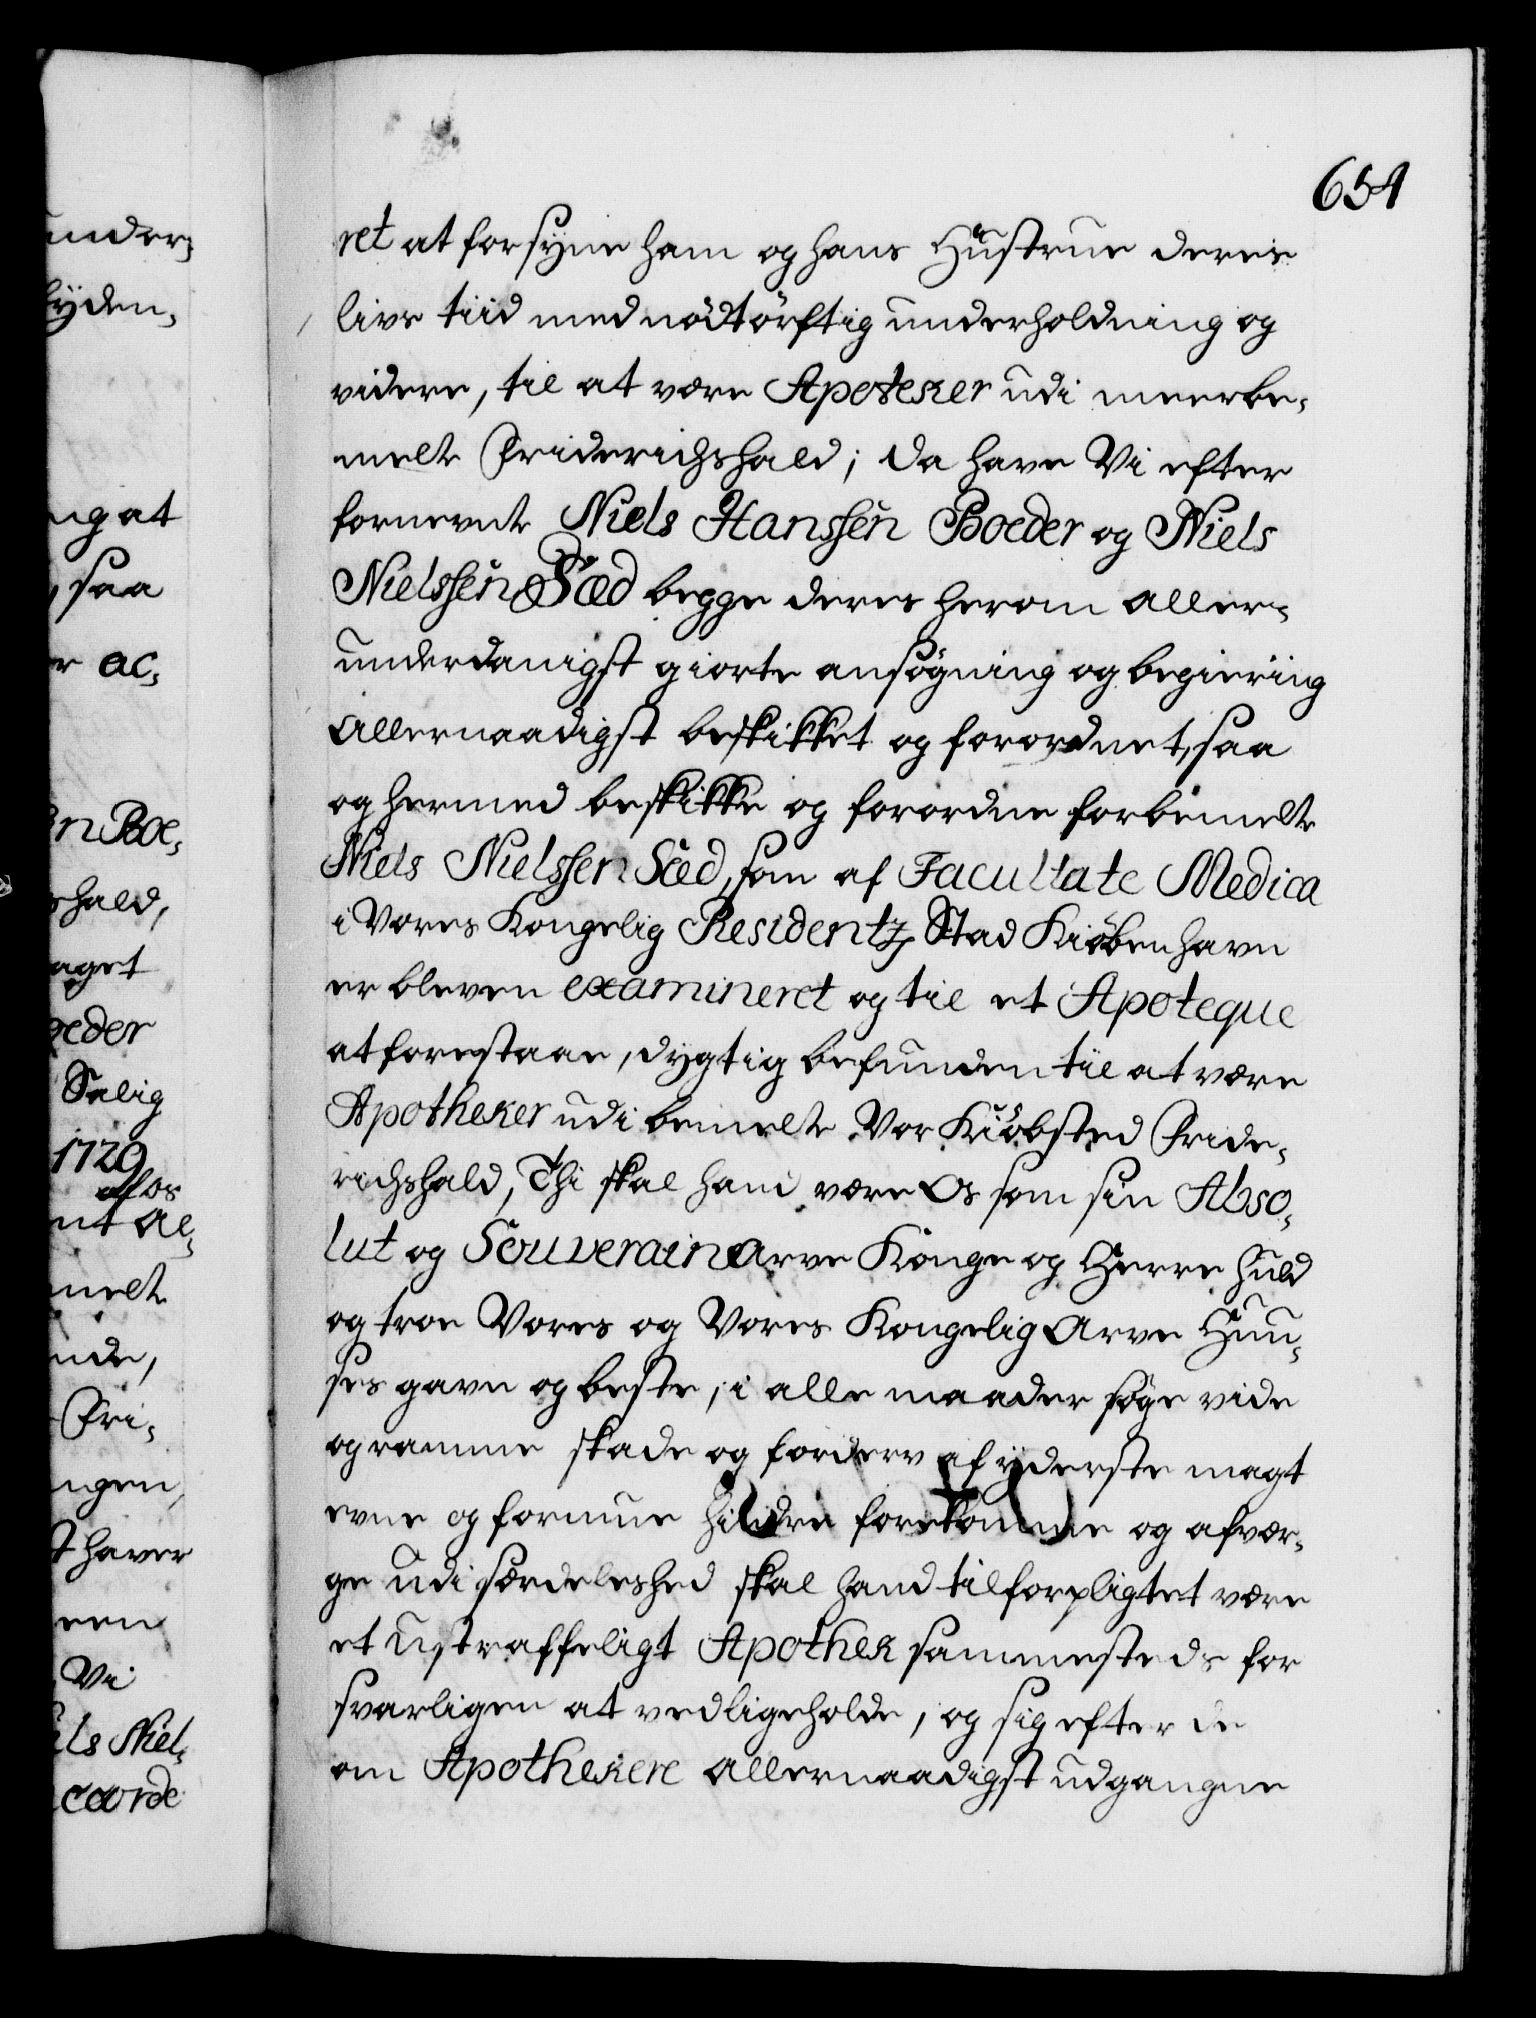 654
ret at forsÿne ham og hans Hustrue deres
livs tiid med nödtörftig underholdning og
videre, til at være Apoteker udi meerbe,
melte Friderichshald; da have Vi efter
fornevnte Niels Hanssen Boeder og Niels
Nielssen Sæd begge deres herom aller,
underdanigst giorte ansøgning og begiering
allernaadigst beskikket og forordnet, saa
og hermed beskikke og forordne forbemelte
Niels Nielssen Sæd, som af Facultate Medica
i Vores Kongelig Residentz Stad Kiöbenhavn
er bleven examineret og til et Apoteque
at forestaae, dygtig befunden til at være
Apotheker udi bemelte Vor Kiöbsted Fride,
richshald, Thi skal hand være Os som sin Abso,
lut og Souverain Arve Konge og Herre huld
og troe Vores og Vores Kongelig Arve Huu,
ses gavn og beste, i alle maader søge vide
og ramme skade og forderv af ÿderste magt
evne og formue hindre forekomme og afvær,
ge udi særdeleshed skal hand tilforpligtet være
et ustraffeligt Apothek sammesteds for
svarligen at vedligeholde, og sig efter de
om Apothekere allernaadigst udgangne
under,
lÿden,
ng at
, saa
er ac,
en Boe,
shald,
aget
oeder
Salig
1729
af os
nt al,
melte
nde,
Fri,
ngen,
t haver
een
Vi
els Niel,
ccorde